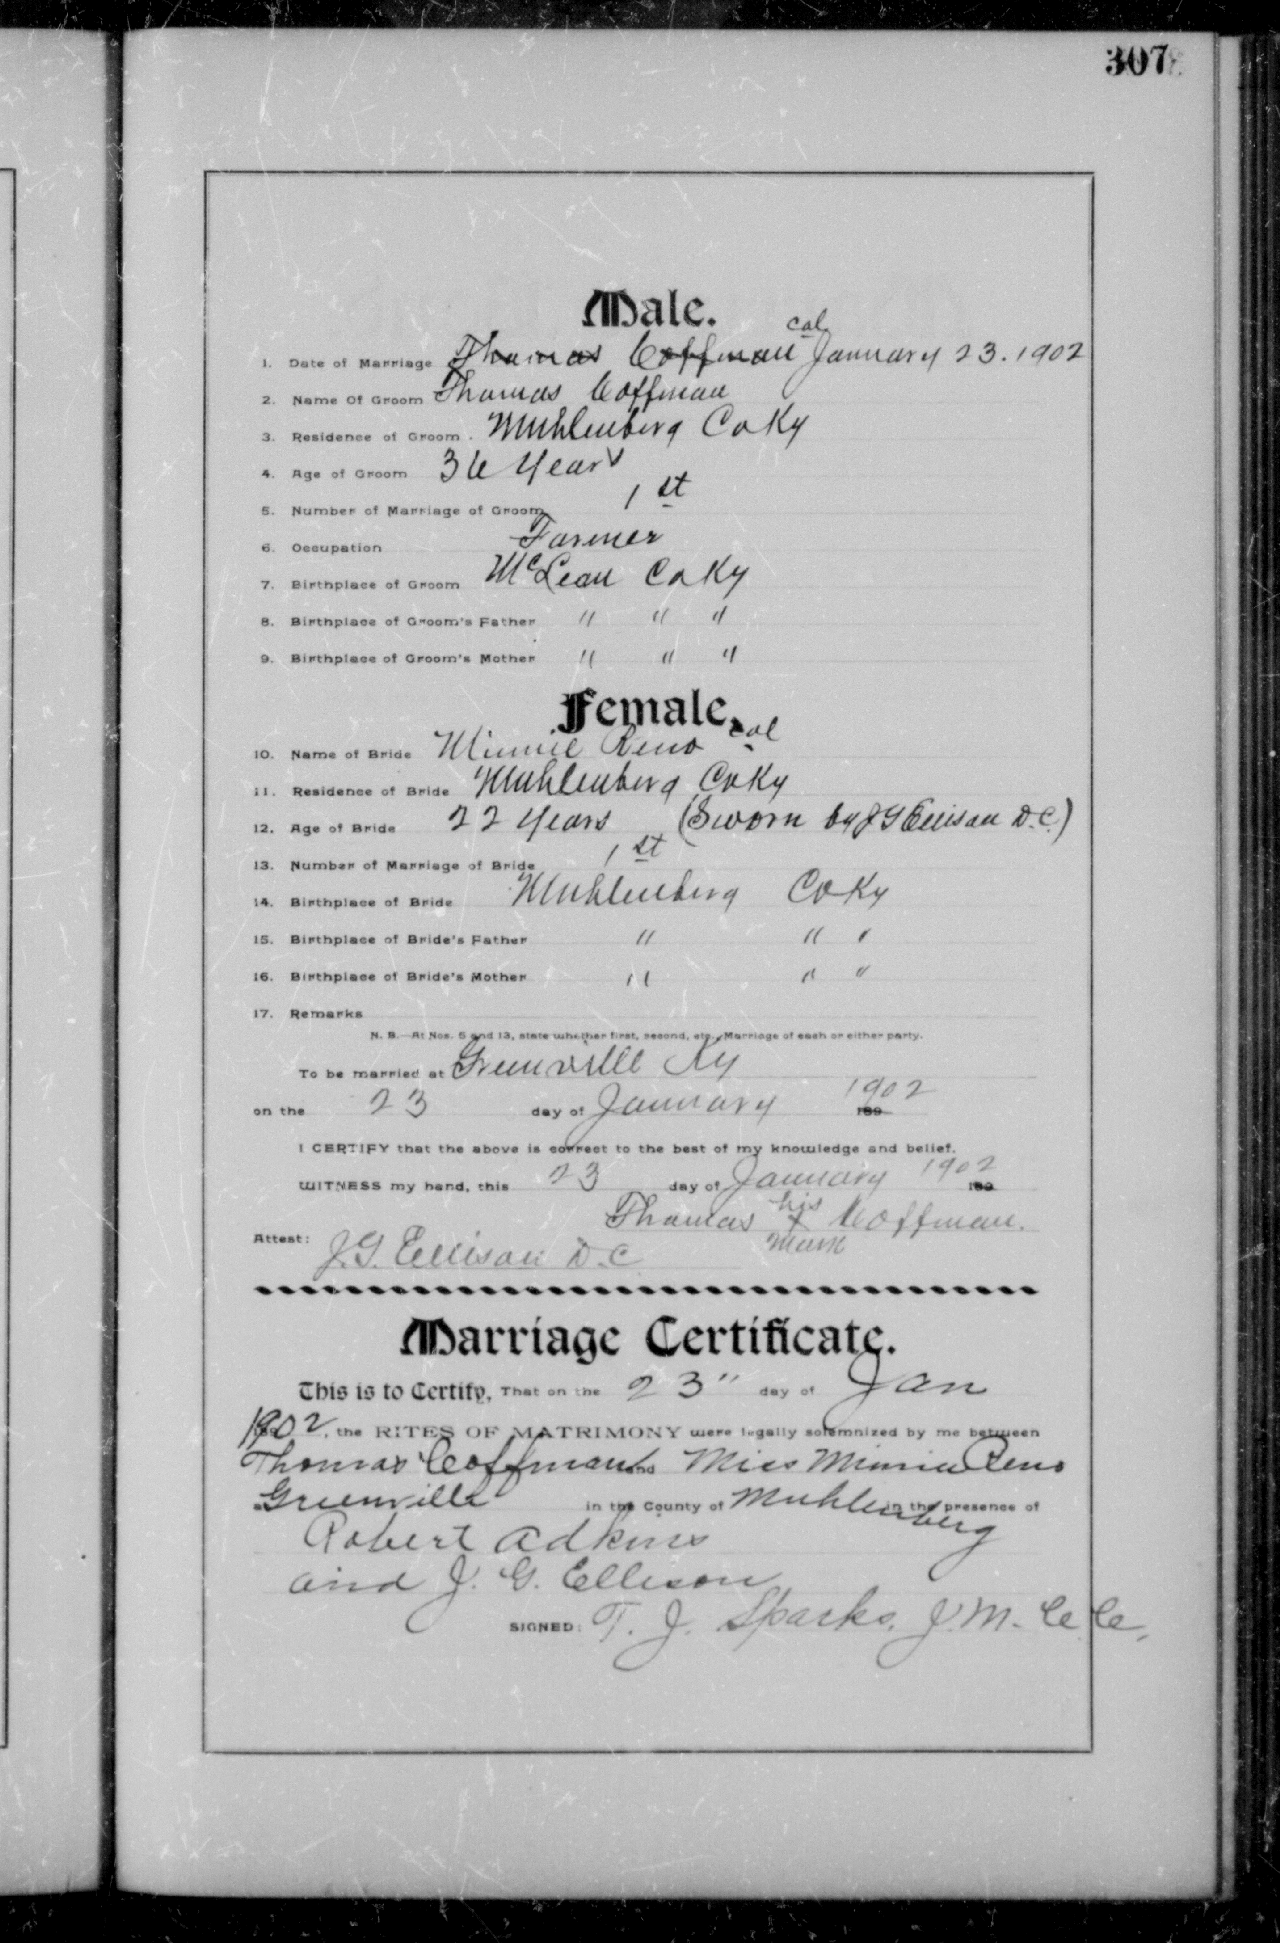 307
Male.
cal
1. Date of Marriage Thomas Coffman January 23. 1902
2. Name Of Groom Thomas Coffman
3. Residence of Groom. Muhlenberg Co Ky
4. Age of Groom 36 Years
5. Number of Marriage of Groom 1st
6. Occupation Farmer
7. Birthplace of Groom McLean Co Ky
8. Birthplace of Groom's Father " " "
9. Birthplace of Groom's Mother " " "
Female.
10. Name of Bride Minnie Reno col
11. Residence of Bride Muhlenberg Co Ky
12. Age of Bride 22 Years (Sworn by J G Ellison D.C.)
13. Number of Marriage of Bride 1st
14. Birthplace of Bride Muhlenberg Co Ky
15. Birthplace of Bride's Father " " "
16. Birthplace of Bride's Mother " " "
17. Remarks
N. B.—At Nos. 5 and 13, state whether first, second, etc., Marriage of each or either party.
To be married at Greenville Ky
on the 23 day of January 189 1902
I CERTIFY that the above is correct to the best of my knowledge and belief.
WITNESS my hand, this 23 day of January 189 1902
Thomas his x mark Coffman.
Attest: J.G. Ellison D.C
Marriage Certificate.
This is to Certify, That on the 23" day of Jan
1902, the RITES OF MATRIMONY were legally solemnized by me between
Thomas Coffman and Miss Minnie Reno
at Greenville in the County of Muhlenberg in the presence of
Robert Adkins
and J. G. Ellison
SIGNED: T. J. Sparks, J. M. C. C.